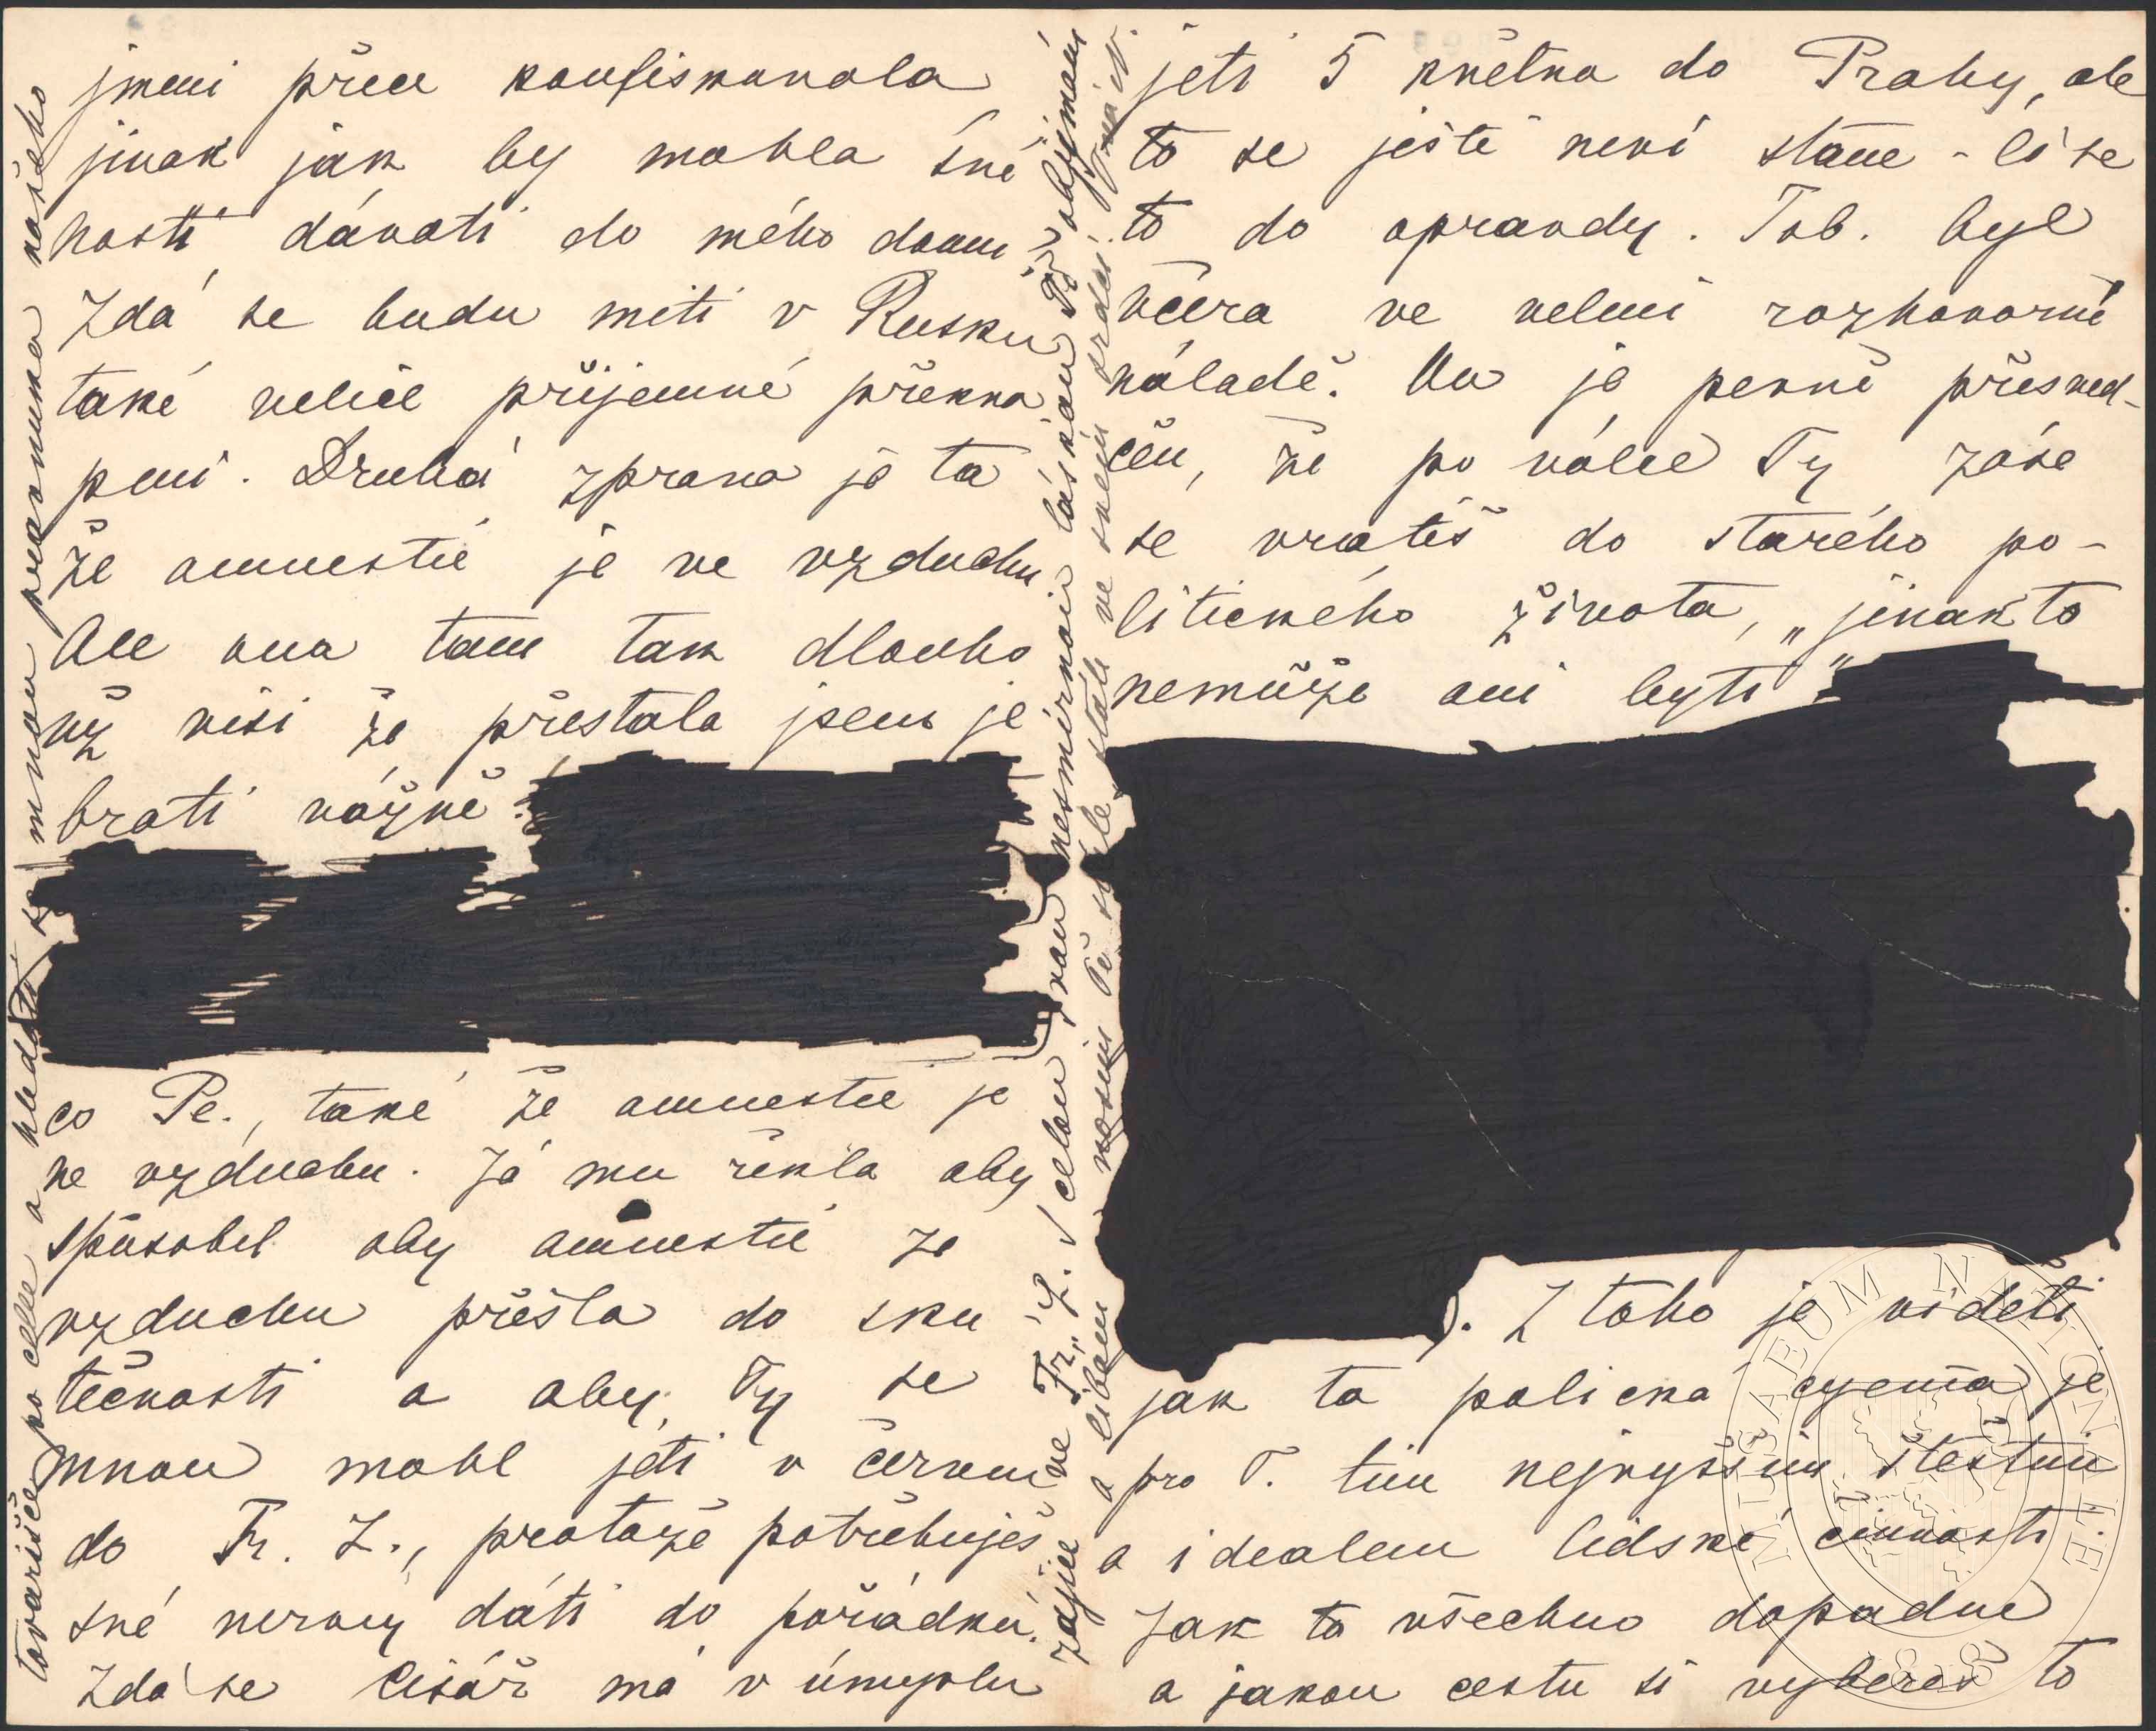 jmeni přece konfiskovala
jinak jak by mohla své
hosti dávati do mého domu
Zdá se budu míti v Rusku
také velice příjemné překva
peni. Druhá zprava je ta
že amnestie je ve vzduchu
Ale ona tam tak dlouho
už visi že přestala jsem je
brati vážně.
co Pe., také že amnestie je
ve vzduchu. Já mu řekla aby
spůsobil aby amnestie ze
vzduchu přešla do sku
tečnosti a aby Ty se
mnou mohl jeti v červnu
do Fr. L., protože potřebuješ
své nervy dáti do pořádku.
Zdá se císář má v úmyslu
jeti 5 května do Prahy, ale
to se ještě neví stane-li se
to do opravdy. Tob. byl
včera ve velmi rozhovorné
náladě. On je pevně přesved-
čen, že po válce Ty záse
se vrátíš do starého po-
litického života, „jinak to
nemůže ani byti"
). Z toho je viděti
jak ta polická cyema je
pro T. tim nejvyššim štěstim
a idealem lidské činnosti
Jak to všechno dopadne
a jakou cestu si vybereš to
tovarišče po celle a hledati se mnou pravnuka našeho
zajíce ve Fr. L. S celou svou nesmírnou láskou Tě objímám
a líbám nosím Tě stále ve svém srdci.